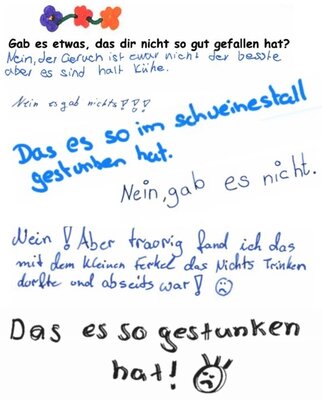 Gab es etwas, das dir nicht so gut gefallen hat?
Nein, der Geruch ist zwar nicht der besste
aber es sind halt Kühe.
Nein es gab nichts!!!
Das es so im schweinestall
gestunben hat.
Nein, gab es nicht.
Nein! Aber traorig fand ich das
mit dem kleinen Ferkel das Nichts Trinken
dorfte und abseits war!
Das es so gestunken
hat!